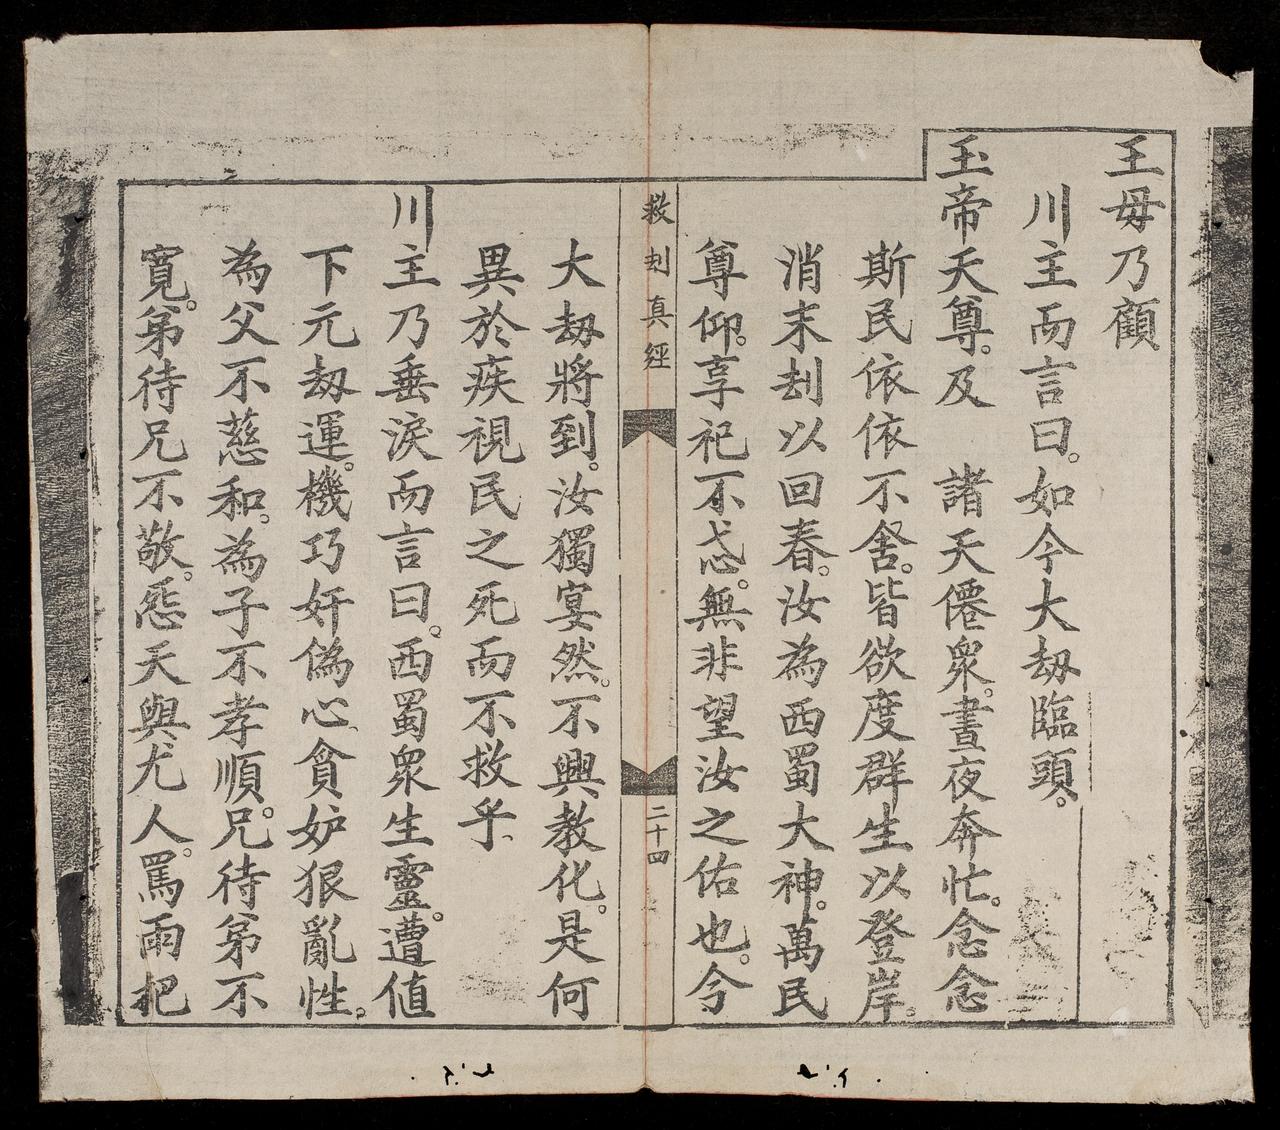 王毋乃顧
川主而言曰。如今大刼臨頭。
玉帝天尊。及 諸天僊眾。晝夜奔忙。念念
斯民依依不舍。皆欲度群生以登岸。
消末刦以回春。汝為西蜀大神。萬民
尊仰。享祀不忒。無非望汝之佑也。今
救刦真經
二十四
大刼將到。汝獨宴然。不興教化。是何
異於疾視民之死而不救乎
川主乃垂淚而言曰。西蜀眾生靈。遭值
下元刼運。機巧奸偽心貪妒狠亂性。
為父不慈和。為子不孝順。兄待弟不
寬。弟待兄不敬。怨天與尤人。罵雨把